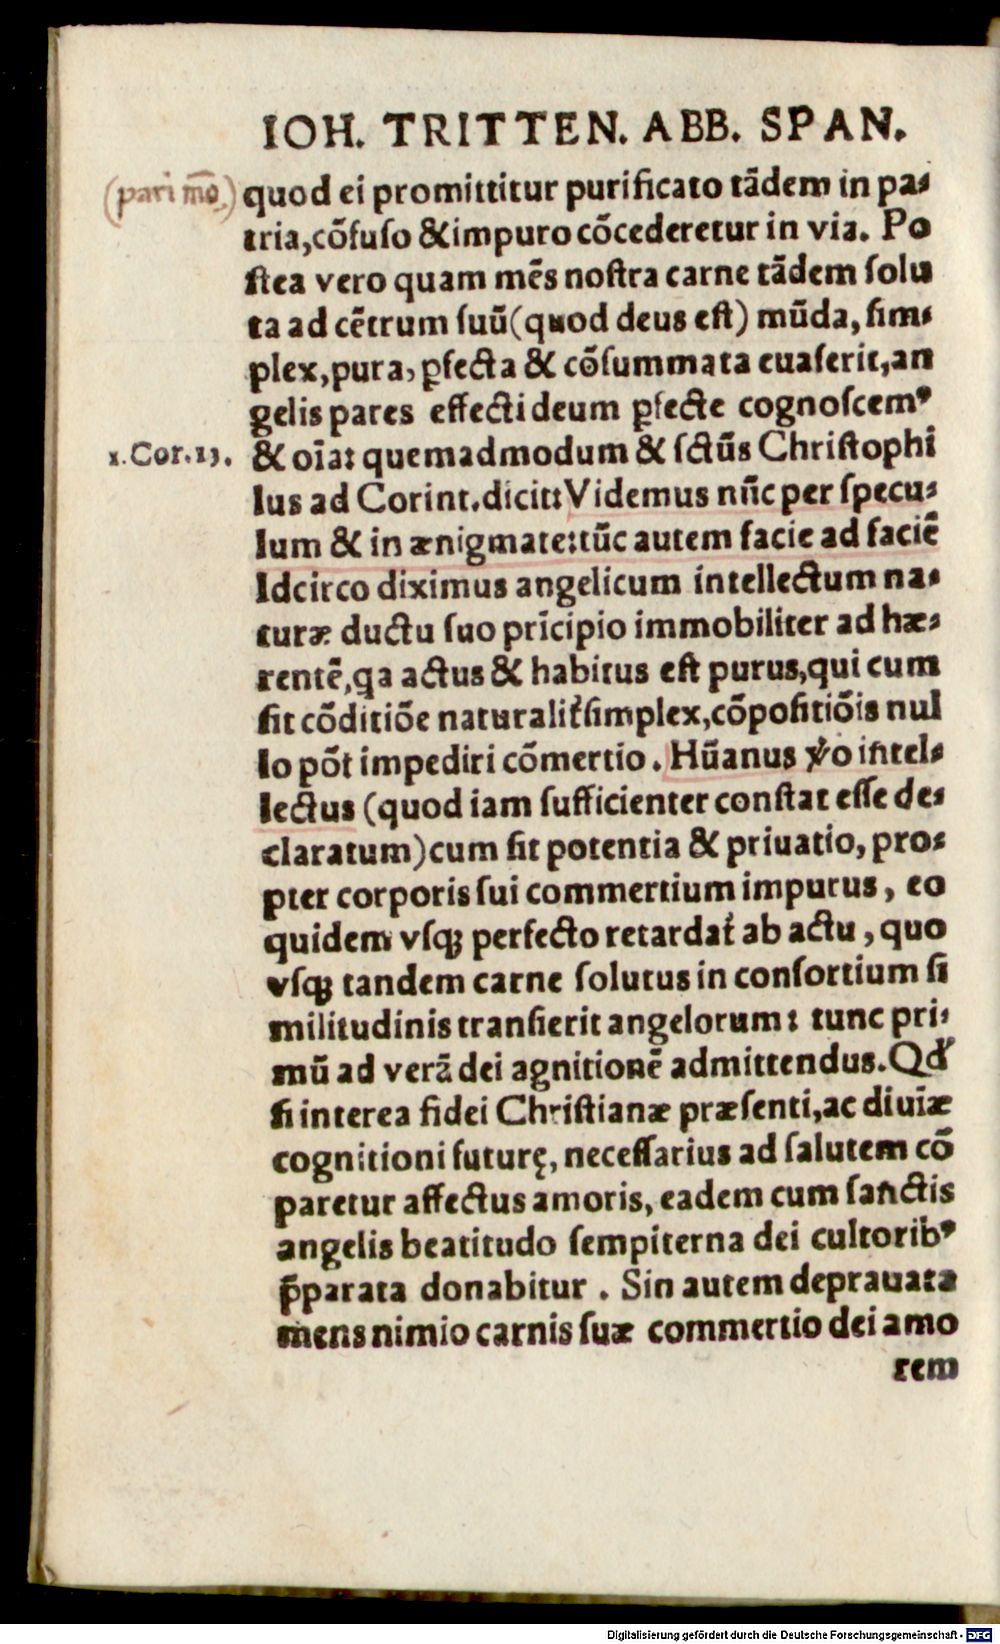 IOH. TRITTEN. ABB. SPAN.
(pari mō.)
quod ei promittitur purificato tādem in pa⸗
tria,cōfuſo &impuro cōcederetur in via. Po
ſtea vero quam mēs noſtra carne tādem ſolu
ta ad cētrum ſuū(quod deus eſt) mūda, ſim⸗
plex,pura, ꝑfecta & cōſummata euaſerit,an
gelis pares effecti deum ꝑfecte cognoſcemꝰ
1.Cor.13.
& oīa: quemadmodum & ſctūs Chriſtophi
lus ad Corint.dicit: Videmus nūc per ſpecu⸗
lum & in ænigmate:tūc autem facie ad faciē
Idcirco diximus angelicum intellectum na⸗
turæ ductu ſuo prīcipio immobiliter ad hæ⸗
rentē,qa actus & habitus eſt purus,qui cum
ſit cōditiōe naturalit̓ſimplex,cōpoſitiōis nul
lo pōt impediri cōmertio. Hūanus v̓o intel⸗
lectus (quod iam ſufficienter conſtat eſſe de⸗
claratum)cum ſit potentia & priuatio, pro⸗
pter corporis ſui commertium impurus, eo
quidem vſqꝫ perfecto retardat̓ ab actu, quo
vſqꝫ tandem carne ſolutus in conſortium ſi
militudinis tranſierit angelorum: tunc pri⸗
mū ad verā dei agnitionē admittendus. Qd̓
ſi interea fidei Chriſtianæ præſenti,ac diuīæ
cognitioni futurę, neceſſarius ad ſalutem cō
paretur affectus amoris, eadem cum ſanctis
angelis beatitudo ſempiterna dei cultoribꝰ
p̄parata donabitur. Sin autem deprauata
mens nimio carnis ſuæ commertio dei amo
rem
Digitalisierung gefördert durch die Deutsche Forschungsgemeinschaft - DFG